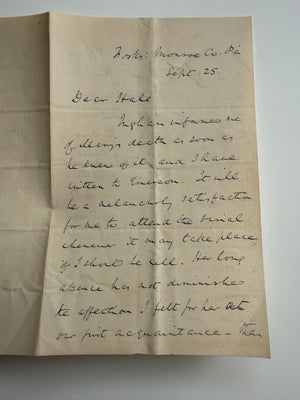 Forks: Monroe Co. Pa
Sept. 25.
Dear Hale
Ingham informs me
of Mary's death as soon as
he knew of it, and I have
written to Emerson. It will
be a melancholy satisfaction
for me to attend the burial
whenever it may take place,
if I should be well. Her long
absence has not diminished
the affection I felt for her at
our first acquaintance – than